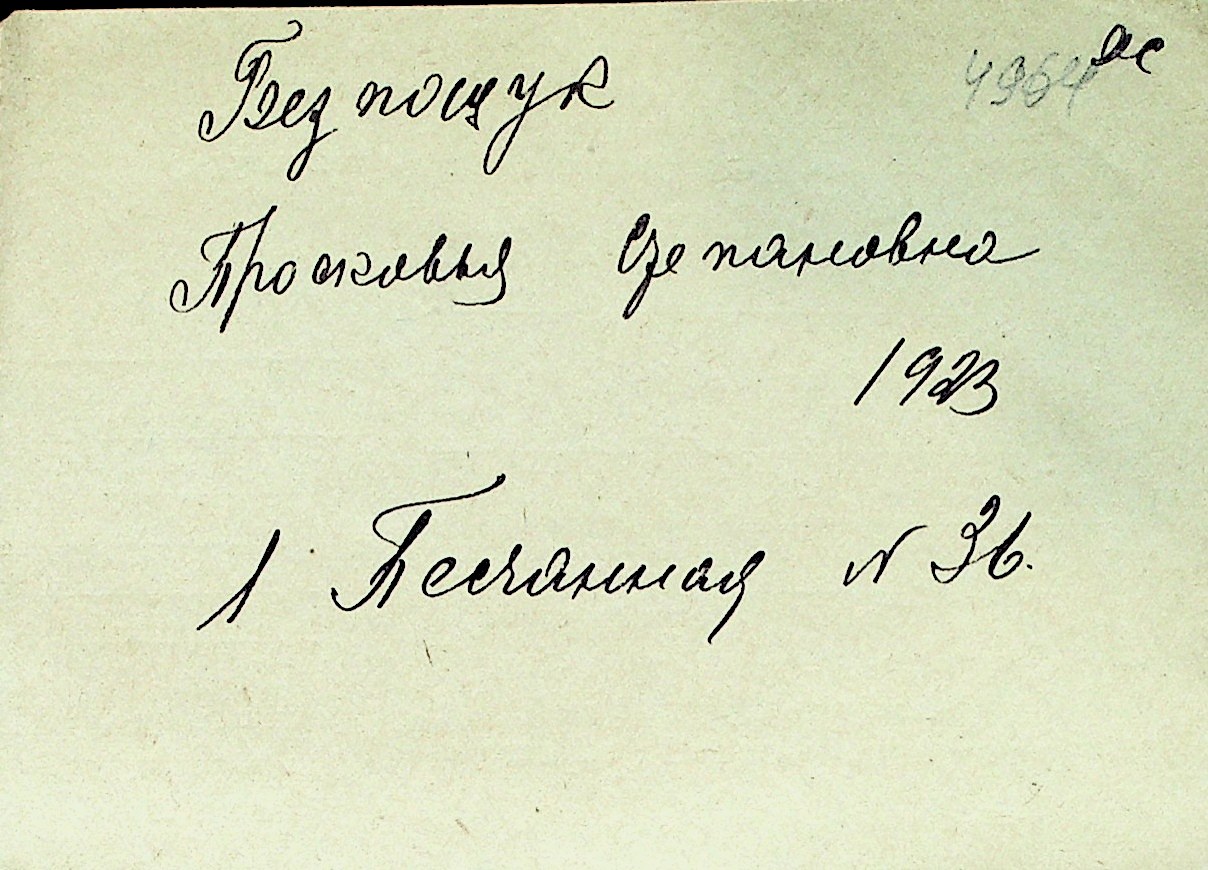 Безпощук
Просковья Степановна
1923
1 Песчанная N 36.